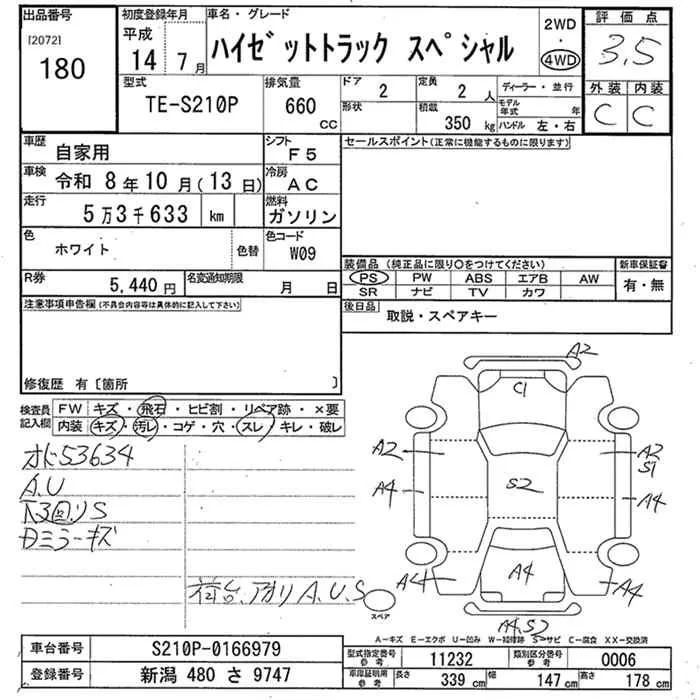 出品番号
[2072]
180
初度登録年月
平成
14 7月
車名・グレード
ハイゼットトラック スペシャル
2WD
・
4WD
評価点
3.5
外装 内装
C C
型式
TE-S210P
排気量
660
CC
ドア
2
形状
定員
2 人
積載
350 kg
ディーラー・並行
モデル年式 年
ハンドル 左・右
車歴
自家用
シフト
F5
車検
令和 8年10月(13日)
冷房
AC
走行
5万3千633 km
燃料
ガソリン
色
ホワイト
色替
色コード
W09
R券
5,440円
名変通知期限
月 日
セールスポイント(正常に機能するものに限ります)
装備品 (純正品に限り〇をつけてください)
PS PW ABS エアB AW
SR ナビ TV カワ
新車保証書
有・無
後日品
取説・スペアキー
注意事項申告欄(不具合内容等は具体的に記入して下さい)
修復歴 有〔箇所 〕
検査員記入欄
FW キズ・飛石・ヒビ割・リペア跡・×要
内装 キズ・汚レ・コゲ・穴・スレ・キレ・破レ
オド53634
A.U
下回りS
Dミラーキズ
荷台、アオリA.U.S
スペア
A2
C1
A2
A2
S1
A4
S2
A4
A4
A4
A4
A4,S2
A-キズ E-エクボ U-凹み W-補修跡 S-サビ C-腐食 XX-交換済
車台番号
S210P-0166979
登録番号
新潟 480 さ 9747
型式指定番号
参考
11232
類別区分番号
参考
0006
車庫証明用
参考
長さ 339 cm
幅 147 cm
高さ 178 cm